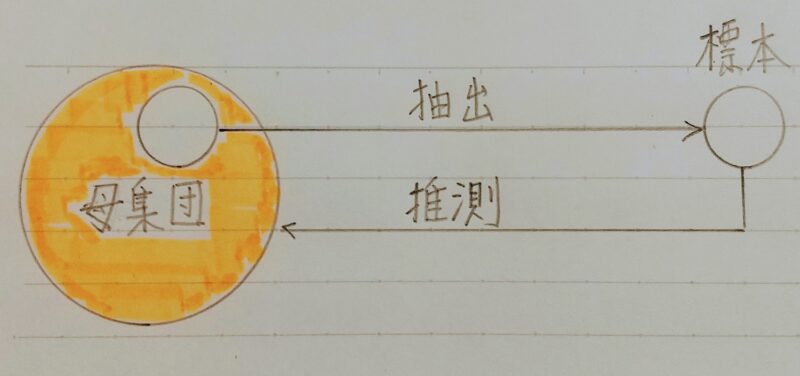 標本
抽出
母集団
推測